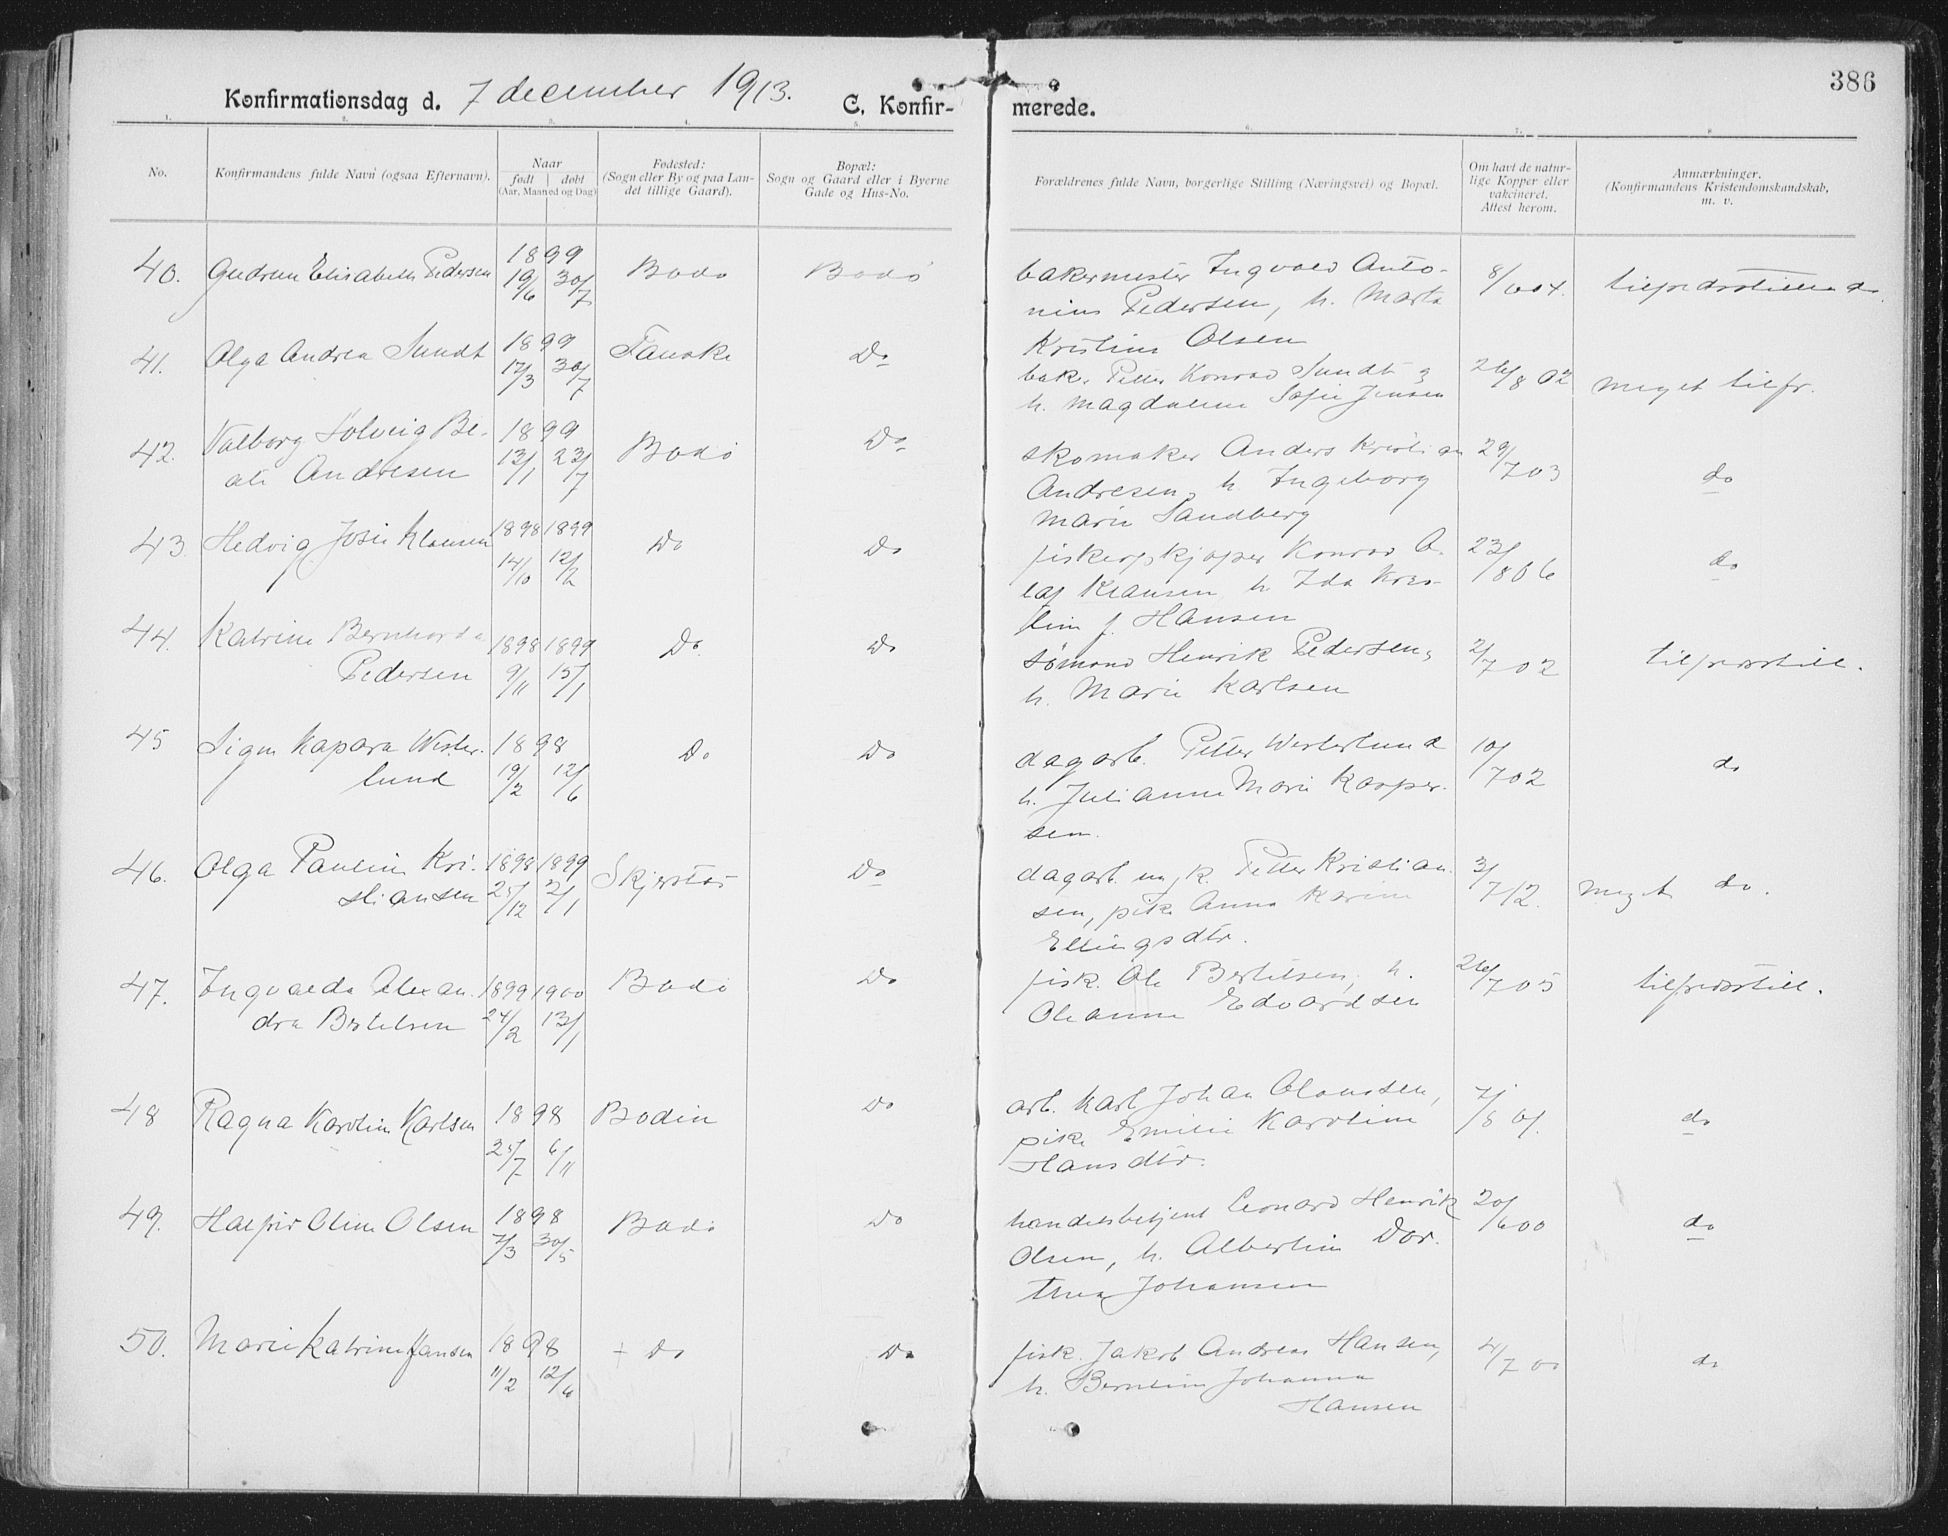 386
Konfirmationsdag d. 7 december 1913. C. Konfir- merede.
1. 2. 3. 4. 5. 6. 7. 8.
No.
Konfirmandens fulde Navn (ogsaa Efternavn).
Naar
født | døbt
(Aar, Maaned og Dag)
Fødested:
(Sogn eller By og paa Lan-
det tillige Gaard).
Bopæl:
Sogn og Gaard eller i Byerne
Gade og Hus-No.
Forældrenes fulde Navn, borgerlige Stilling (Næringsvei) og Bopæl.
Om havt de natur-
lige Kopper eller
vakcineret.
Attest herom.
Anmærkninger.
(Konfirmandens Kristendomskundskab,
m. v.
40. Gudrun Elisabeth Pedersen 1899 19/6 30/7 Bodø Bodø
bakermester Ingvald Anto-
nius Pedersen, h. Marta
Kristine Olsen
8/604. tilfredsstillende.
41. Olga Andrea Sundt 1899 17/3 30/7 Fauske Do
bak. Petter Konrad Sundt og
h. Magdalene Sofie Jensen
26/8 02 meget tilfr.
42. Valborg Solveig Be-
ate Andresen 1899 13/1 23/7 Bodø Do
skomaker Anders Kristian
Andresen, h. Ingeborg
Marie Sandberg
29/703 do
43. Hedvig Josie Klausen 1898 1899 14/10 12/2 Do Do
fiskeopkjøper Konrad O-
laf Klausen, h. Ida Kris-
tine f. Hansen
23/806 do
44. Katrine Bernharda
Pedersen 1898 1899 9/11 15/1 Do Do
sømand Henrik Pedersen,
h. Marie Karlsen
2/702 tilfredsstill.
45 Signe Kapara Wester-
lund 1898 19/2 12/6 Do Do
dagarb. Petter Westerlund
h. Julianne Marie Kasper-
sen.
10/702 do
46. Olga Pauline Kri-
stiansen 1898 1899 25/12 2/1 Skjerstad Do
dagarb. ungk. Petter Kristian-
sen, pike Anna Karine
Ellingsdtr.
3/712. meget do.
47. Ingvalda Alexan-
dra Bertelsen 1899 1900 24/2 13/1 Bodø Do
fisk. Ole Bertelsen, h.
Oleanna Edvardsen
26/705 tilfredsstill.
48 Ragna Karoline Karlsen 1898 25/7 6/11 Bodin Do
arb. Karl Johan Olaussen,
pike Emilie Karoline
Hansdtr.
7/8 01. do
49. Halfrid Oline Olsen 1898 7/3 30/5 Bodø Do
handelsbetjent Leonard Henrik
Olsen, h. Albertine Dor-
thea Johansen
20/600 do
50. Marie Katrine Hansen 1898 11/2 12/6 + Do Do
fisk. Jakob Andreas Hansen,
h. Berntine Johanna
Hansen
4/700 do